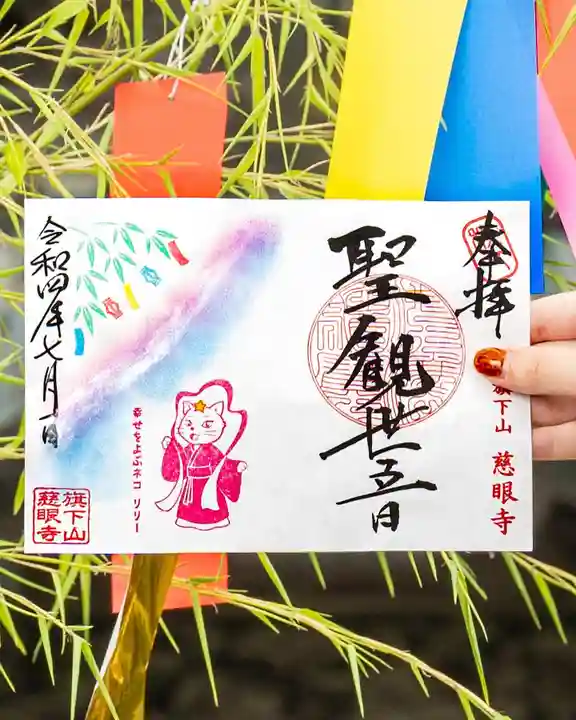 奉拝
旗下山 慈眼寺
聖観世音
幸せをよぶネコ リリー
令和四年七月一日
旗下山
慈眼寺